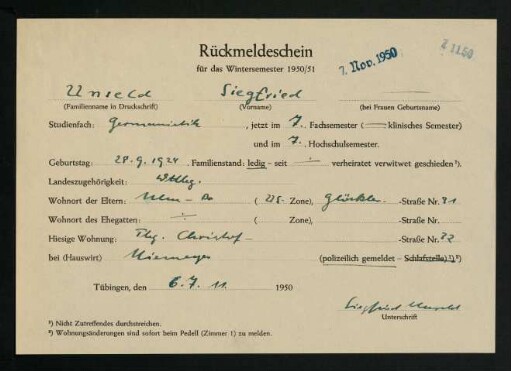 Rückmeldeschein
für das Wintersemester 1950/51
7. Nov. 1950
2 11 50
Unseld Siegfried
(Familienname in Druckschrift) (Vorname) (bei Frauen Geburtsname)
Studienfach: Germanistik, jetzt im 7. Fachsemester (— klinisches Semester)
und im 7. Hochschulsemester.
Geburtstag: 28.9.1924. Familienstand: ledig - seit ÷ verheiratet verwitwet geschieden¹).
Landeszugehörigkeit: Wttbg.
Wohnort der Eltern: Ulm - Do (US. Zone), -Straße Nr. 31
Wohnort des Ehegatten: ÷ ( Zone), -Straße Nr.
Hiesige Wohnung: Tbg. Christof- -Straße Nr. 22
bei (Hauswirt) Niemeyer (polizeilich gemeldet - Schlafstelle)¹)²)
Tübingen, den 6. 11. 1950
Siegfried Unseld
Unterschrift
¹) Nicht Zutreffendes durchstreichen.
²) Wohnungsänderungen sind sofort beim Pedell (Zimmer 1) zu melden.